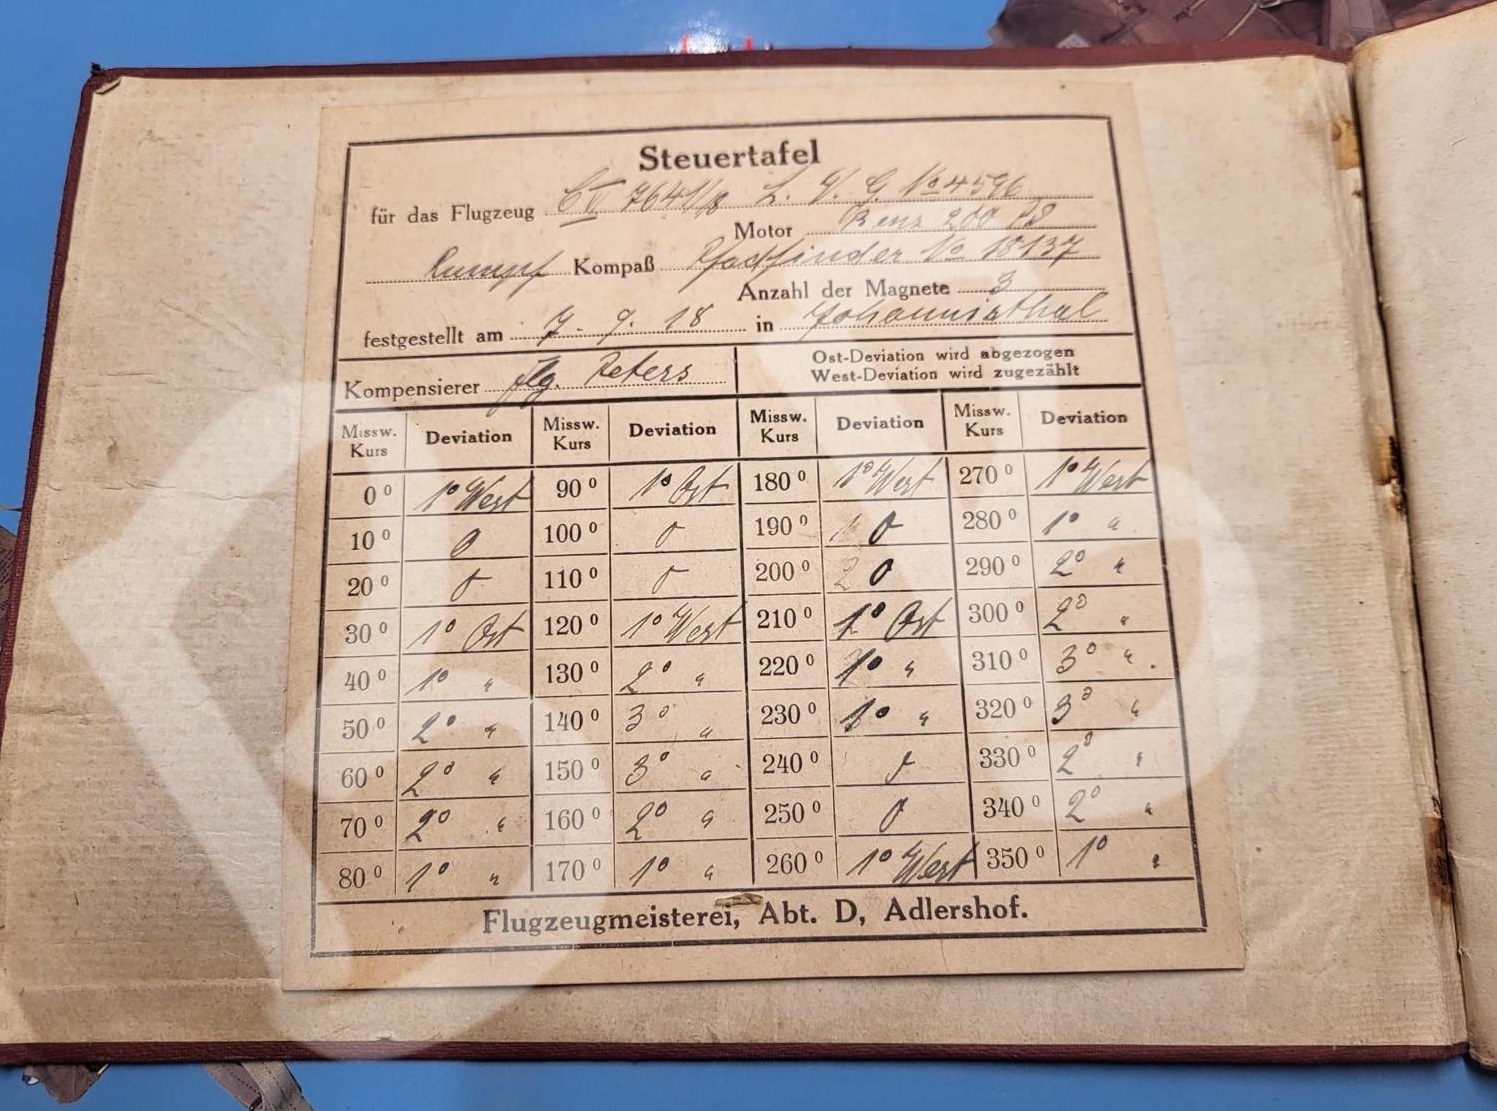 Steuertafel
für das Flugzeug C V 7641/18 L. V. G. No 4596
Motor Benz 200 PS
Rumpf Kompaß Pfadfinder No 18137
Anzahl der Magnete 3
festgestellt am 7. 9. 18 in Johannisthal
Kompensierer Flg. Peters
Ost-Deviation wird abgezogen
West-Deviation wird zugezählt
Missw. Kurs Deviation Missw. Kurs Deviation Missw. Kurs Deviation Missw. Kurs Deviation
0° 1° West 90° 1° Ost 180° 1° West 270° 1° West
10° 0 100° 0 190° 0 280° 1° "
20° 0 110° 0 200° 0 290° 2° "
30° 1° Ost 120° 1° West 210° 1° Ost 300° 2° "
40° 1° " 130° 2° " 220° 1° " 310° 3° " .
50° 2° " 140° 3° " 230° 1° " 320° 3° "
60° 2° " 150° 3° " 240° 0 330° 2° "
70° 2° " 160° 2° " 250° 0 340° 2° "
80° 1° " 170° 1° " 260° 1° West 350° 1° "
Flugzeugmeisterei, Abt. D, Adlershof.